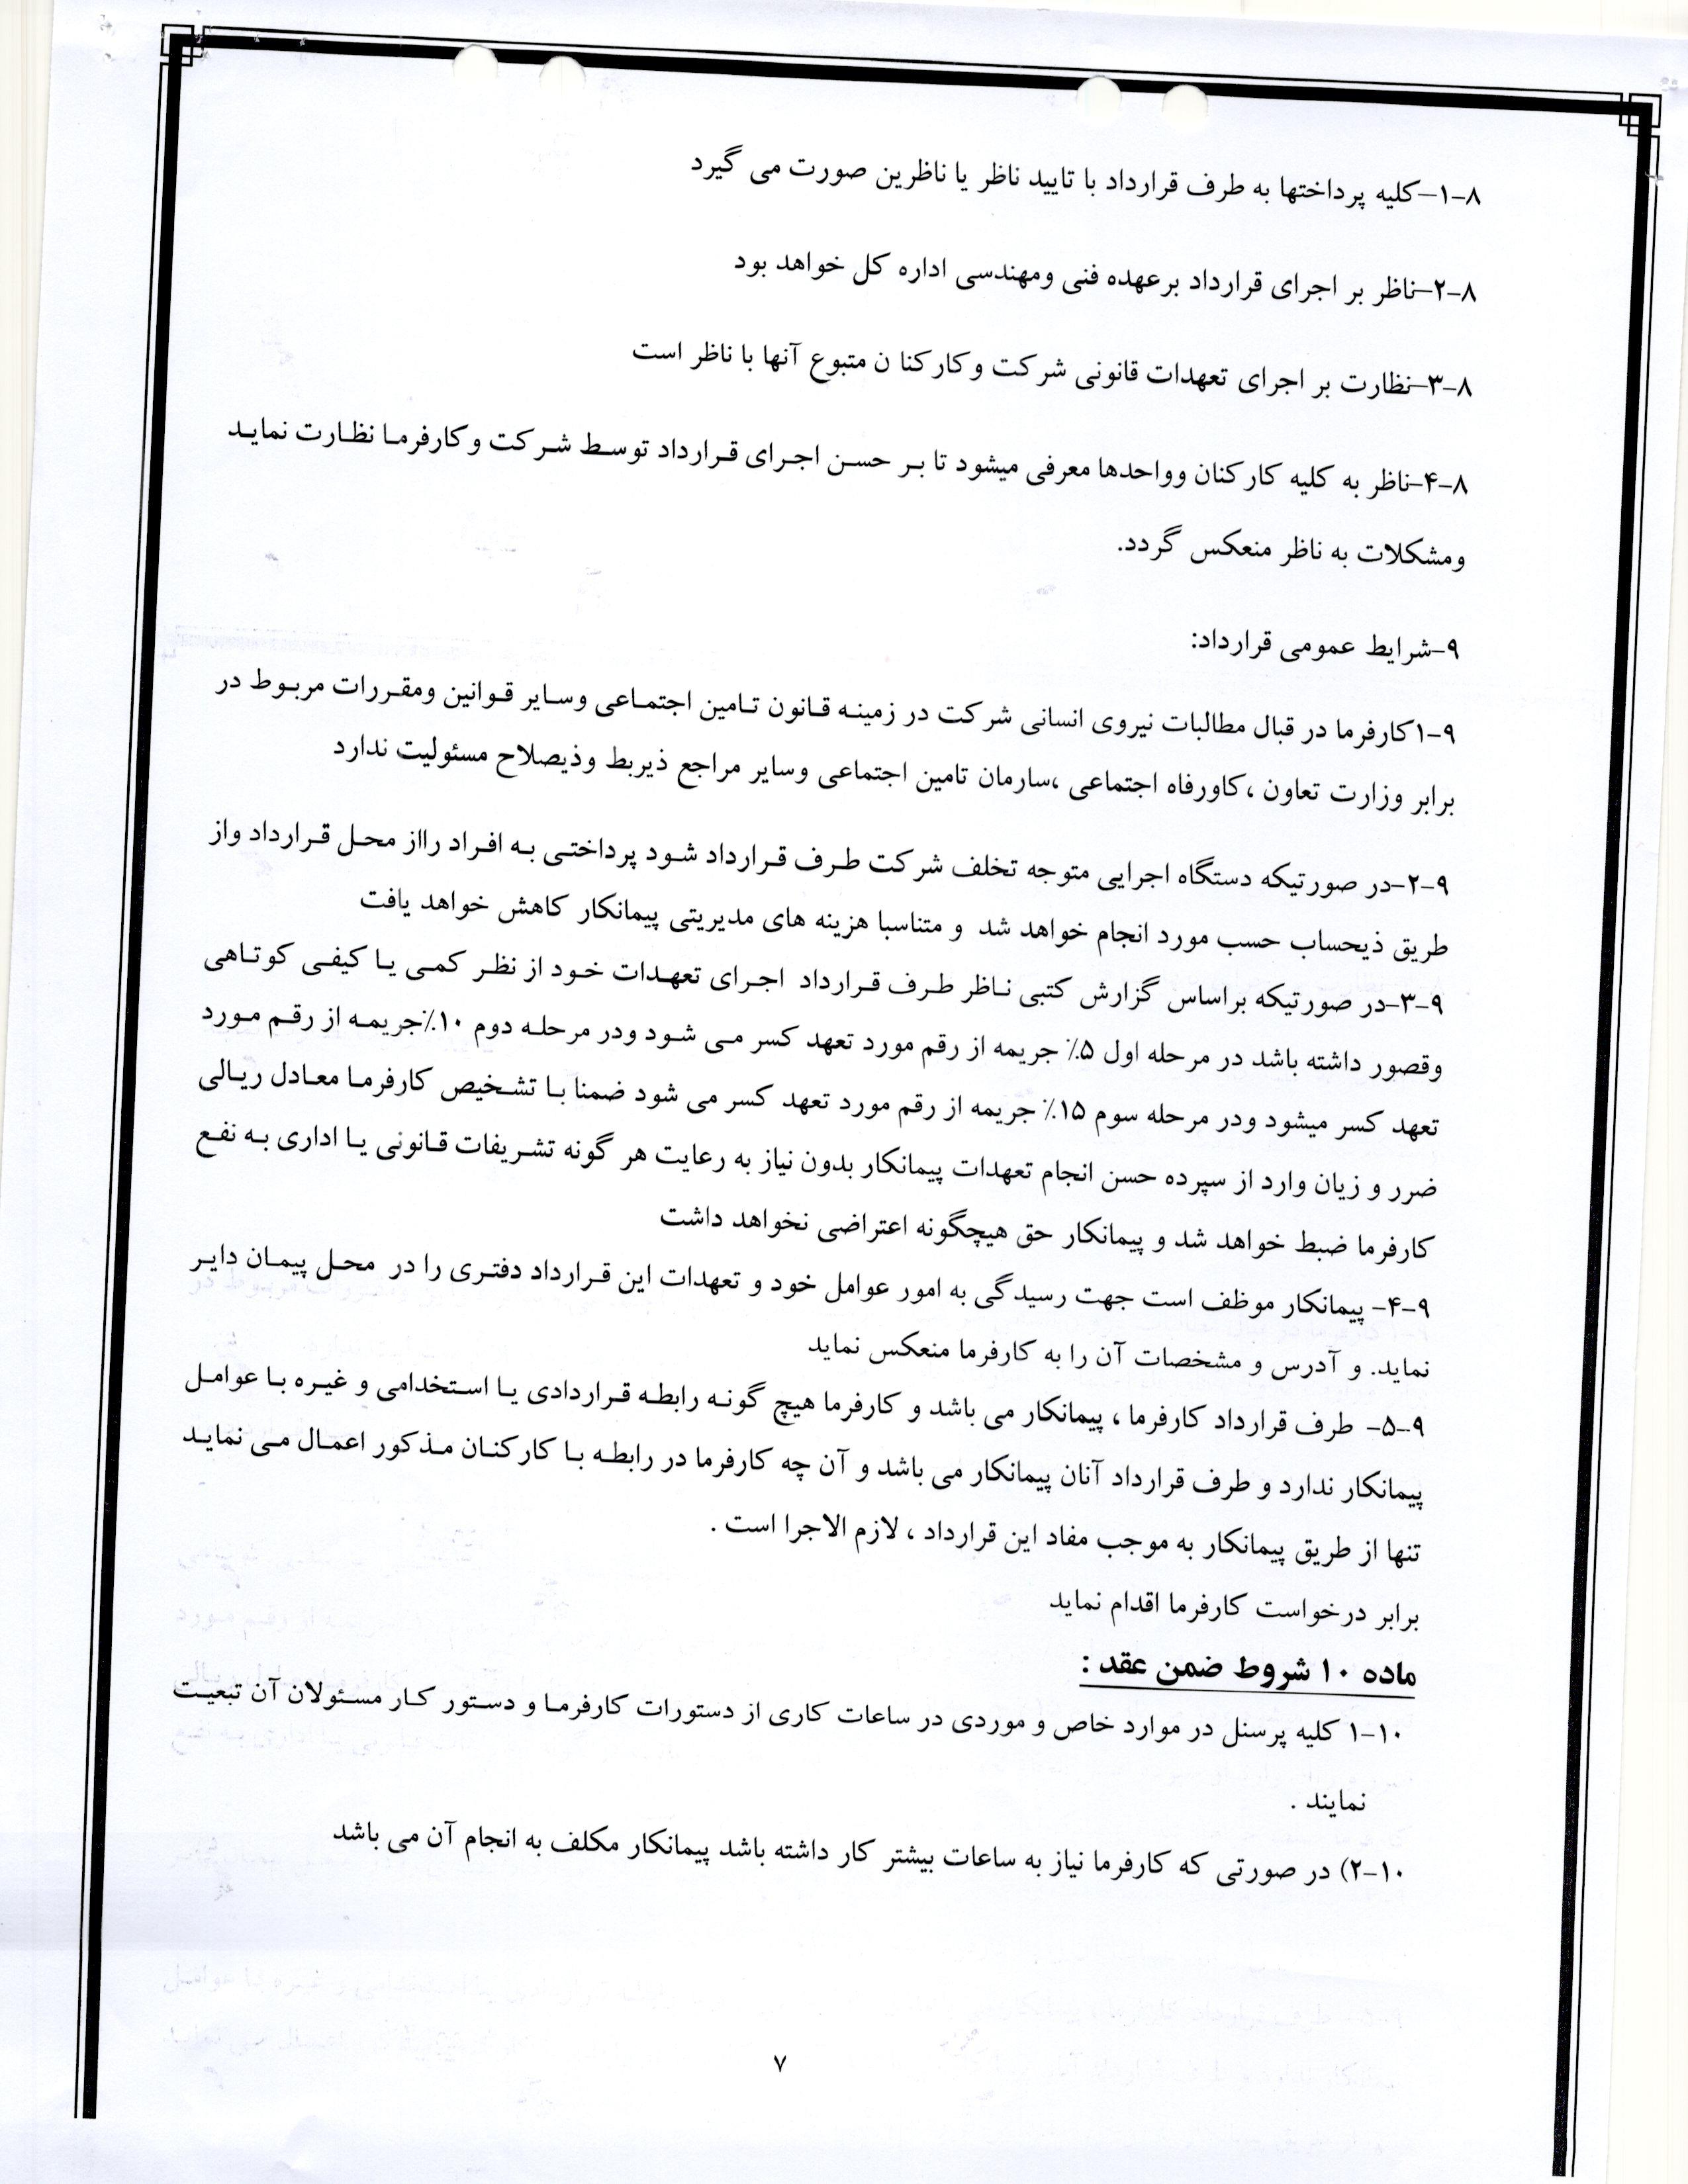 ۸-۱-کلیه پرداختها به طرف قرارداد با تایید ناظر یا ناظرین صورت می گیرد
۸-۲-ناظر بر اجرای قرارداد برعهده فنی ومهندسی اداره کل خواهد بود
۸-۳-نظارت بر اجرای تعهدات قانونی شرکت وکارکنا ن متبوع آنها با ناظر است
۸-۴-ناظر به کلیه کارکنان وواحدها معرفی میشود تا بر حسن اجرای قرارداد توسط شرکت وکارفرما نظارت نماید
ومشکلات به ناظر منعکس گردد.
۹-شرایط عمومی قرارداد:
۹-۱کارفرما در قبال مطالبات نیروی انسانی شرکت در زمینه قانون تامین اجتماعی وسایر قوانین ومقررات مربوط در
برابر وزارت تعاون ،کاورفاه اجتماعی ،سارمان تامین اجتماعی وسایر مراجع ذیربط وذیصلاح مسئولیت ندارد
۹-۲-در صورتیکه دستگاه اجرایی متوجه تخلف شرکت طرف قرارداد شود پرداختی به افراد رااز محل قرارداد واز
طریق ذیحساب حسب مورد انجام خواهد شد و متناسبا هزینه های مدیریتی پیمانکار کاهش خواهد یافت
۹-۳-در صورتیکه براساس گزارش کتبی ناظر طرف قرارداد اجرای تعهدات خود از نظر کمی یا کیفی کوتاهی
وقصور داشته باشد در مرحله اول ۵٪ جریمه از رقم مورد تعهد کسر می شود ودر مرحله دوم ۱۰٪جریمه از رقم مورد
تعهد کسر میشود ودر مرحله سوم ۱۵٪ جریمه از رقم مورد تعهد کسر می شود ضمنا با تشخیص کارفرما معادل ریالی
ضرر و زیان وارد از سپرده حسن انجام تعهدات پیمانکار بدون نیاز به رعایت هر گونه تشریفات قانونی یا اداری به نفع
کارفرما ضبط خواهد شد و پیمانکار حق هیچگونه اعتراضی نخواهد داشت
۹-۴- پیمانکار موظف است جهت رسیدگی به امور عوامل خود و تعهدات این قرارداد دفتری را در محل پیمان دایر
نماید. و آدرس و مشخصات آن را به کارفرما منعکس نماید
۹-۵- طرف قرارداد کارفرما ، پیمانکار می باشد و کارفرما هیچ گونه رابطه قراردادی یا استخدامی و غیره با عوامل
پیمانکار ندارد و طرف قرارداد آنان پیمانکار می باشد و آن چه کارفرما در رابطه با کارکنان مذکور اعمال می نماید
تنها از طریق پیمانکار به موجب مفاد این قرارداد ، لازم الاجرا است .
برابر درخواست کارفرما اقدام نماید
ماده ۱۰ شروط ضمن عقد :
۱۰-۱ کلیه پرسنل در موارد خاص و موردی در ساعات کاری از دستورات کارفرما و دستور کار مسئولان آن تبعیت
نمایند .
۱۰-۲) در صورتی که کارفرما نیاز به ساعات بیشتر کار داشته باشد پیمانکار مکلف به انجام آن می باشد
۷